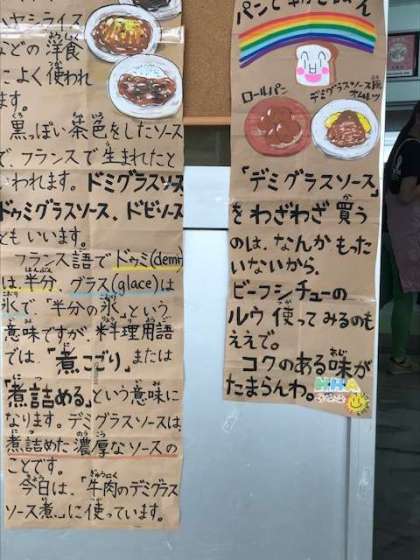 ハヤシライス
などの洋食
によく使われ
ます。
黒っぽい茶色をしたソース
で、フランスで生まれたと
いわれます。ドミグラスソース
ドゥミグラスソース、ドビソース
ともいいます。
フランス語でドゥミ(demi)
は半分、グラス(glace)は
氷で「半分の氷」という
意味ですが、料理用語
では、「煮こごり」または
「煮詰める」という意味に
なります。デミグラスソースは
煮詰めた濃厚なソースの
ことです。
今日は、「牛肉のデミグラス
ソース煮」に使っています。
ロールパン
デミグラスソース
オムレツ
「デミグラスソース」
をわざわざ買う
のは、なんかもった
いないから、
ビーフシチューの
ルウ使ってみるのも
ええで。
コクのある味が
たまらんわ。